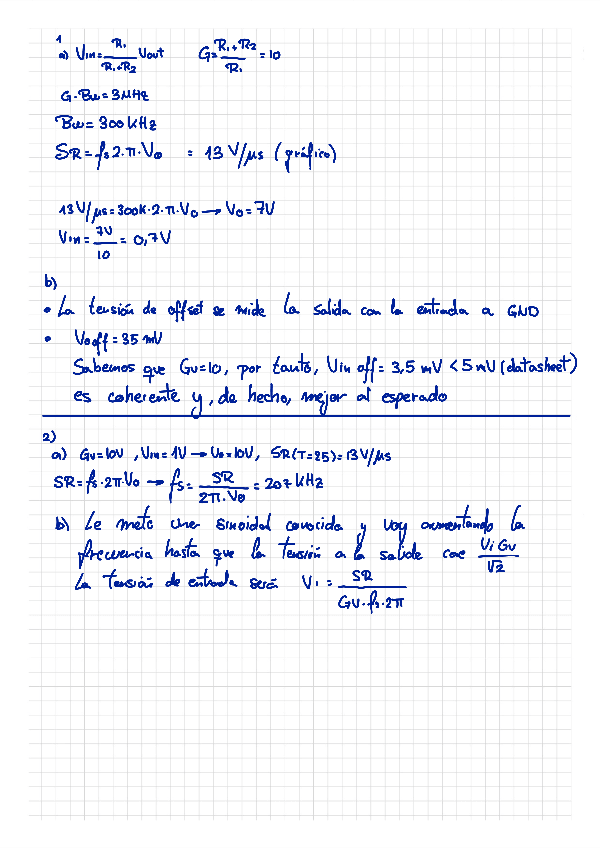 1
a) Vin = R1/(R1+R2) Vout G = (R1+R2)/R1 = 10
G·Bw = 3MHz
Bw = 300 kHz
SR = fs 2·π·Vo = 13 V/μs (gráfico)
13 V/μs = 300K·2·π·Vo → Vo = 7V
Vin = 7V/10 = 0,7V
b)
• La tensión de offset se mide la salida con la entrada a GND
• Vooff = 35 mV
Sabemos que Gv=10, por tanto, Vin off = 3,5 mV < 5 mV (datasheet)
es coherente y, de hecho, mejor al esperado
2)
a) Gv = 10V, Vin = 1V → Vo = 10V, SR(T=25) = 13 V/μs
SR = fs·2π·Vo → fs = SR/(2π·Vo) = 207 kHz
b) Le meto una sinoidal conocida y voy aumentando la
frecuencia hasta que la tensión a la salida cae Vi Gv/√2
La tensión de entrada será Vi = SR/(Gv·fs·2π)